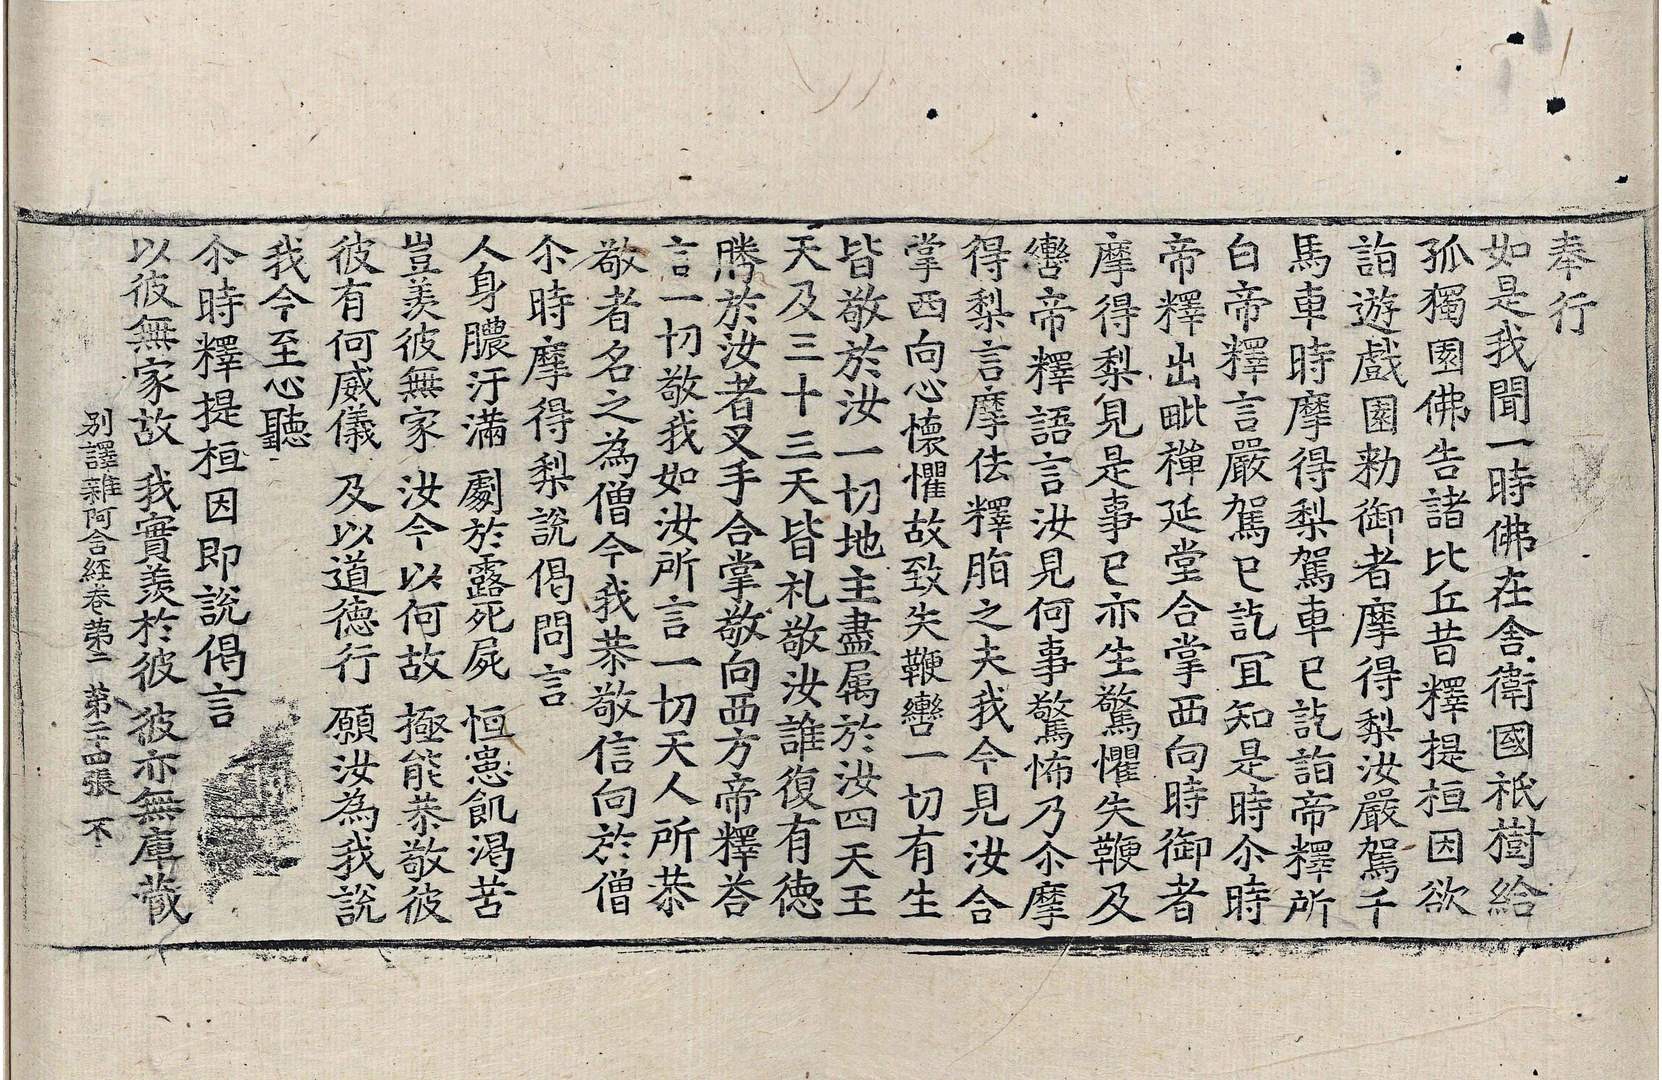 奉行
如是我聞一時佛在舍衛國祇樹給
孤獨園佛告諸比丘昔釋提桓因欲
詣遊戲園勑御者摩得梨汝嚴駕千
馬車時摩得梨駕車已訖詣帝釋所
白帝釋言嚴駕已訖冝知是時尒時
帝釋出毗禪延堂合掌西向時御者
摩得梨見是事已亦生驚懼失鞭及
轡帝釋語言汝見何事驚怖乃尒摩
得梨言摩佉釋脂之夫我今見汝合
掌西向心懷懼故致失鞭轡一切有生
皆敬於汝一切地主盡属於汝四天王
天及三十三天皆礼敬汝誰復有德
勝於汝者叉手合掌敬向西方帝釋荅
言一切敬我如汝所言一切天人所恭
敬者名之為僧今我恭敬信向於僧
尒時摩得梨說偈問言
人身膿汙滿 劇於露死屍 恒患飢渴苦
豈羨彼無家 汝今以何故 極能恭敬彼
彼有何威儀 及以道德行 願汝為我說
我今至心聽
尒時釋提桓因即說偈言
以彼無家故 我實羨於彼 彼亦無庫藏
別譯雜阿含經卷第二 第二十四張 不